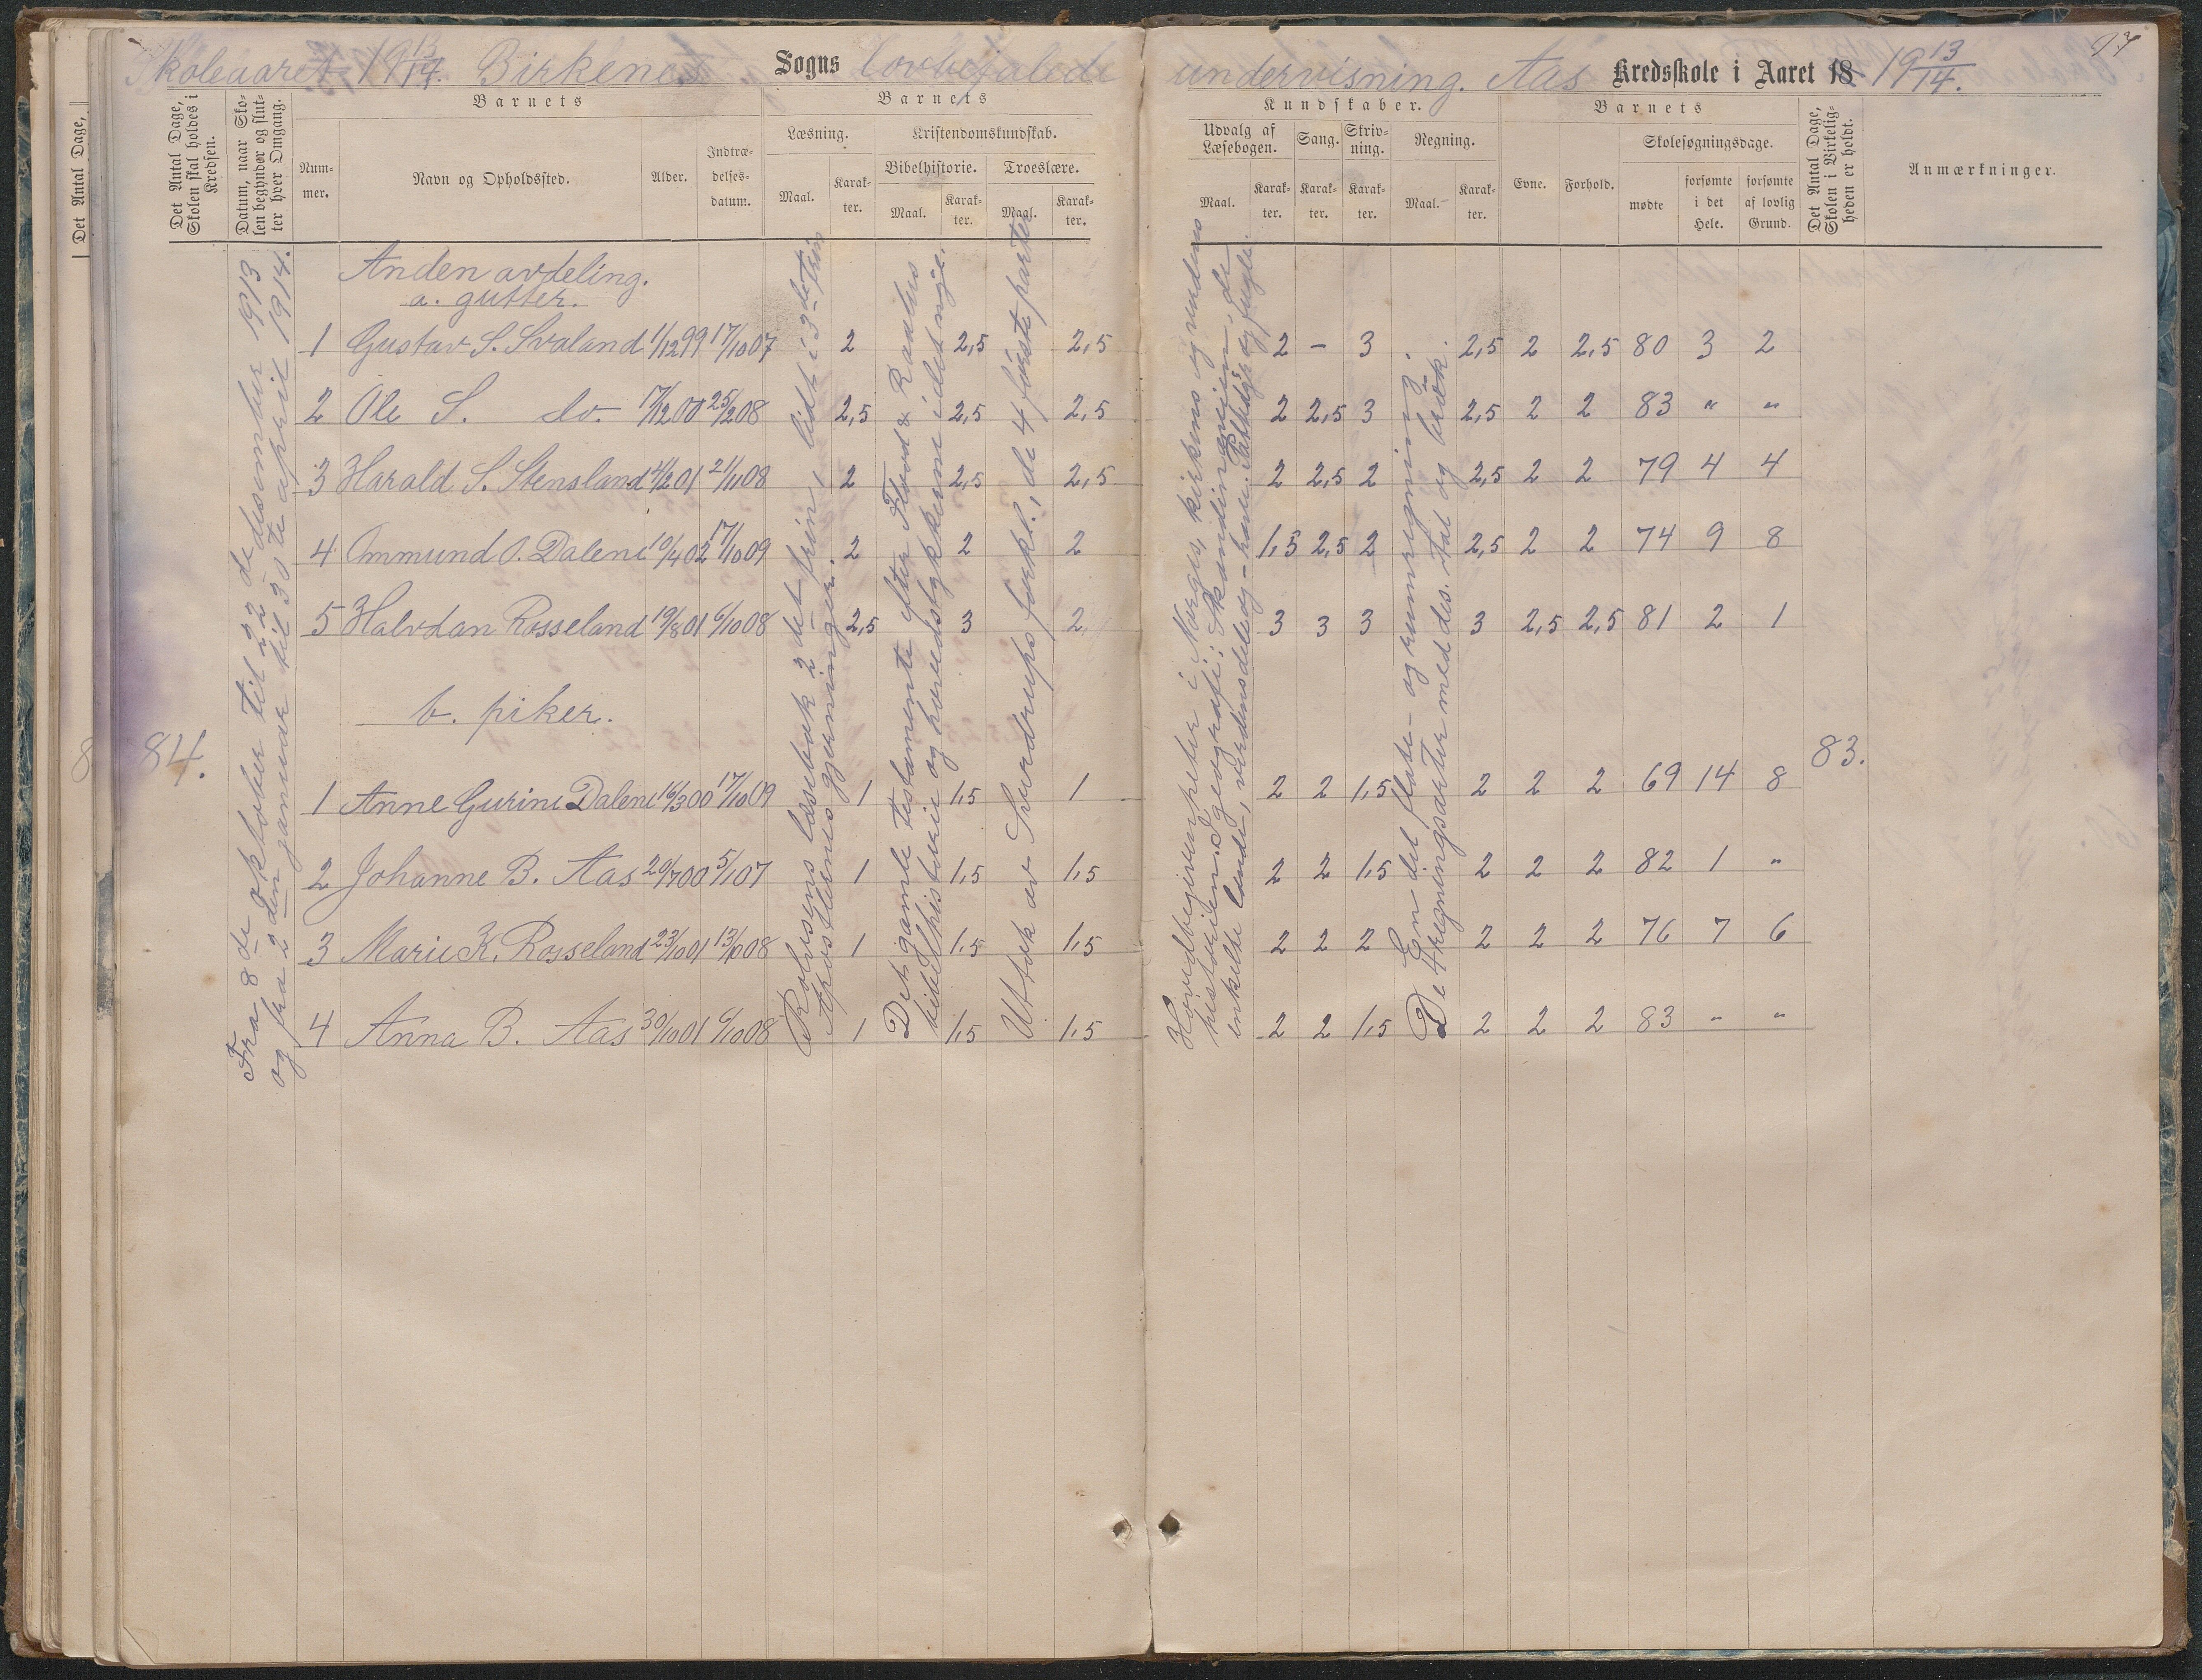 97
Skoleaaret 19 13/14. Birkenes Sogns lovbefalede undervisning. Aas Kredsskole i Aaret 18 19 13/14.
Det Antal Dage,
Det Antal Dage, Skolen skal holdes i Kredsen.
Datum, naar Skolen begynder og slutter hver Omgang.
Barnets
Nummer.
Navn og Opholdssted.
Alder.
Indtrædelses-datum.
Barnets
Læsning.
Maal.
Karakter.
Kristendomskundskab.
Bibelhistorie.
Maal.
Karakter.
Troeslære.
Maal.
Karakter.
Kundskaber.
Udvalg af Læsebogen.
Maal.
Karakter.
Sang.
Karakter.
Skrivning.
Karakter.
Regning.
Maal.
Karakter.
Barnets
Evne.
Forhold.
Skolesøgningsdage.
mødte
forsømte i det Hele.
forsømte af lovlig Grund.
Det Antal Dage, Skolen i Virkeligheden er holdt.
Anmærkninger.
84.
Fra 8de oktober til 22de desember 1913
og fra 2den januar til 30te april 1914.
Rolvsens læsebok 2det trin, lidt i 3dje trin
Apostlenes gjerninger.
Det gamle testamente efter Flood & Raaders
bibelhistorie og hovedstykkerne i det nye.
Uttok av Sverdrups forkl., de 4 første parter
Hovedbegivenheter i Norges, kirkens og verdens
historien. I geografi: Skandinavien, de
enkelte lande, verdensdele og -have. Pattedyr og fugle.
En del flate- og rumregning.
De 4 regningsarter med des. tal og brøk.
83.
Anden avdeling.
a. gutter.
1 Gustav S. Svaland 1/12 99 17/10 07 2 2,5 2,5 2 – 3 2,5 2 2,5 80 3 2
2 Ole S. do. 17/12 00 25/2 08 2,5 2,5 2,5 2 2,5 3 2,5 2 2 83 " "
3 Harald S. Stensland 4/2 01 21/11 08 2 2,5 2,5 2 2,5 2 2,5 2 2 79 4 4
4 Ommund O. Dalene 10/4 02 17/10 09 2 2 2 1,5 2,5 2 2,5 2 2 74 9 8
5 Halvdan Rosseland 19/8 01 6/10 08 2,5 3 2 3 3 3 3 2,5 2,5 81 2 1
b. piker.
1 Anne Gurine Dalene 16/3 00 17/10 09 1 1,5 1 2 2 1,5 2 2 2 69 14 8
2 Johanne B. Aas 20/7 00 5/1 07 1 1,5 1,5 2 2 1,5 2 2 2 82 1 "
3 Marie K. Rosseland 23/10 01 13/1 08 1 1,5 1,5 2 2 2 2 2 2 76 7 6
4 Anna B. Aas 30/10 01 6/10 08 1 1,5 1,5 2 2 1,5 2 2 2 83 " "